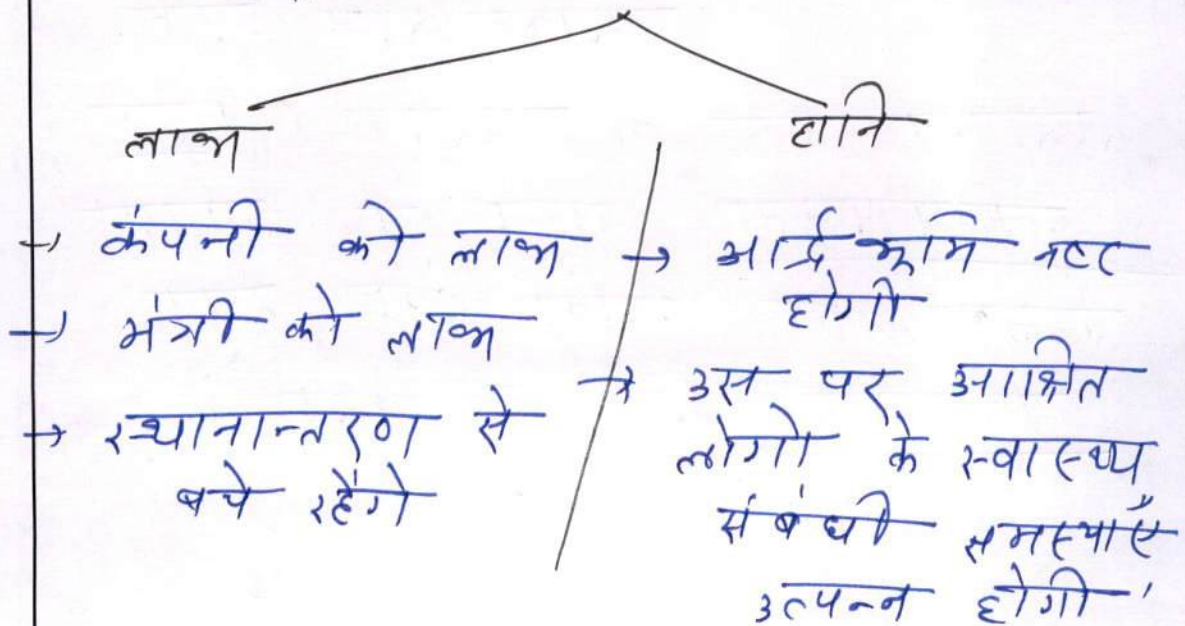 लाभ
हानि
→ कंपनी को लाभ
→ मंत्री को लाभ
→ स्थानान्तरण से
बचे रहेंगे
→ आर्द्र भूमि नष्ट
होगी
→ उस पर आश्रित
लोगो के स्वास्थ्य
संबंधी समस्याएँ
उत्पन्न होगी